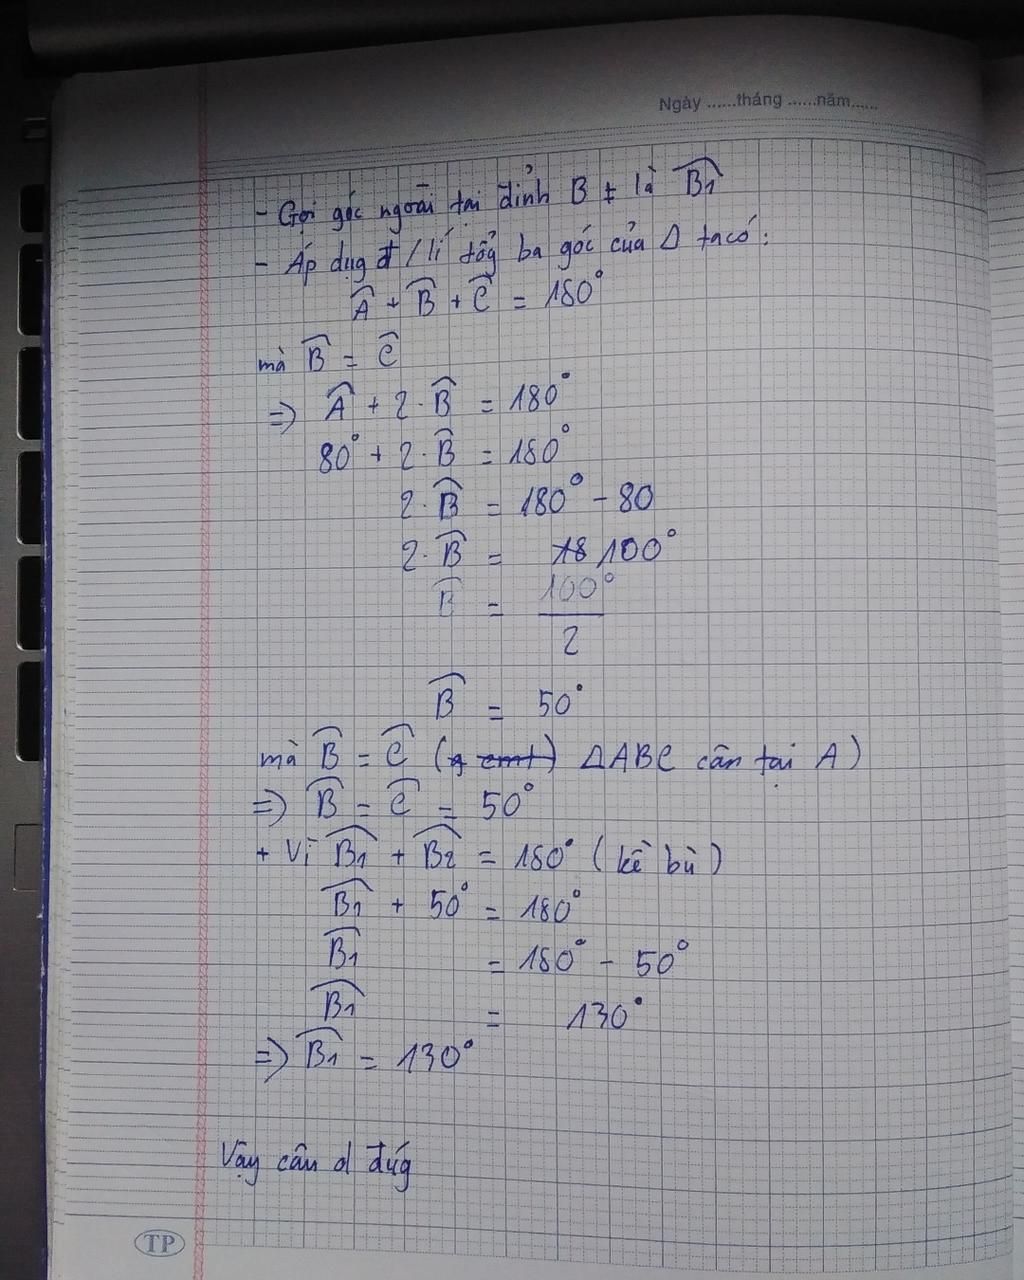 Ngày ......tháng ......năm......
- Gọi góc ngoài tại đỉnh B là B̂1
- Áp dụg đ/lí tổg ba góc của Δ ta có:
Â + B̂ + Ĉ = 180°
mà B̂ = Ĉ
=> Â + 2·B̂ = 180°
80° + 2·B̂ = 180°
2·B̂ = 180° - 80
2·B̂ = 100°
B̂ = 100°/2
B̂ = 50°
mà B̂ = Ĉ (ΔABC cân tại A)
=> B̂ = Ĉ = 50°
+ Vì B̂1 + B̂2 = 180° (kề bù)
B̂1 + 50° = 180°
B̂1 = 180° - 50°
B̂1 = 130°
=> B̂1 = 130°
Vậy câu d đúg
TP